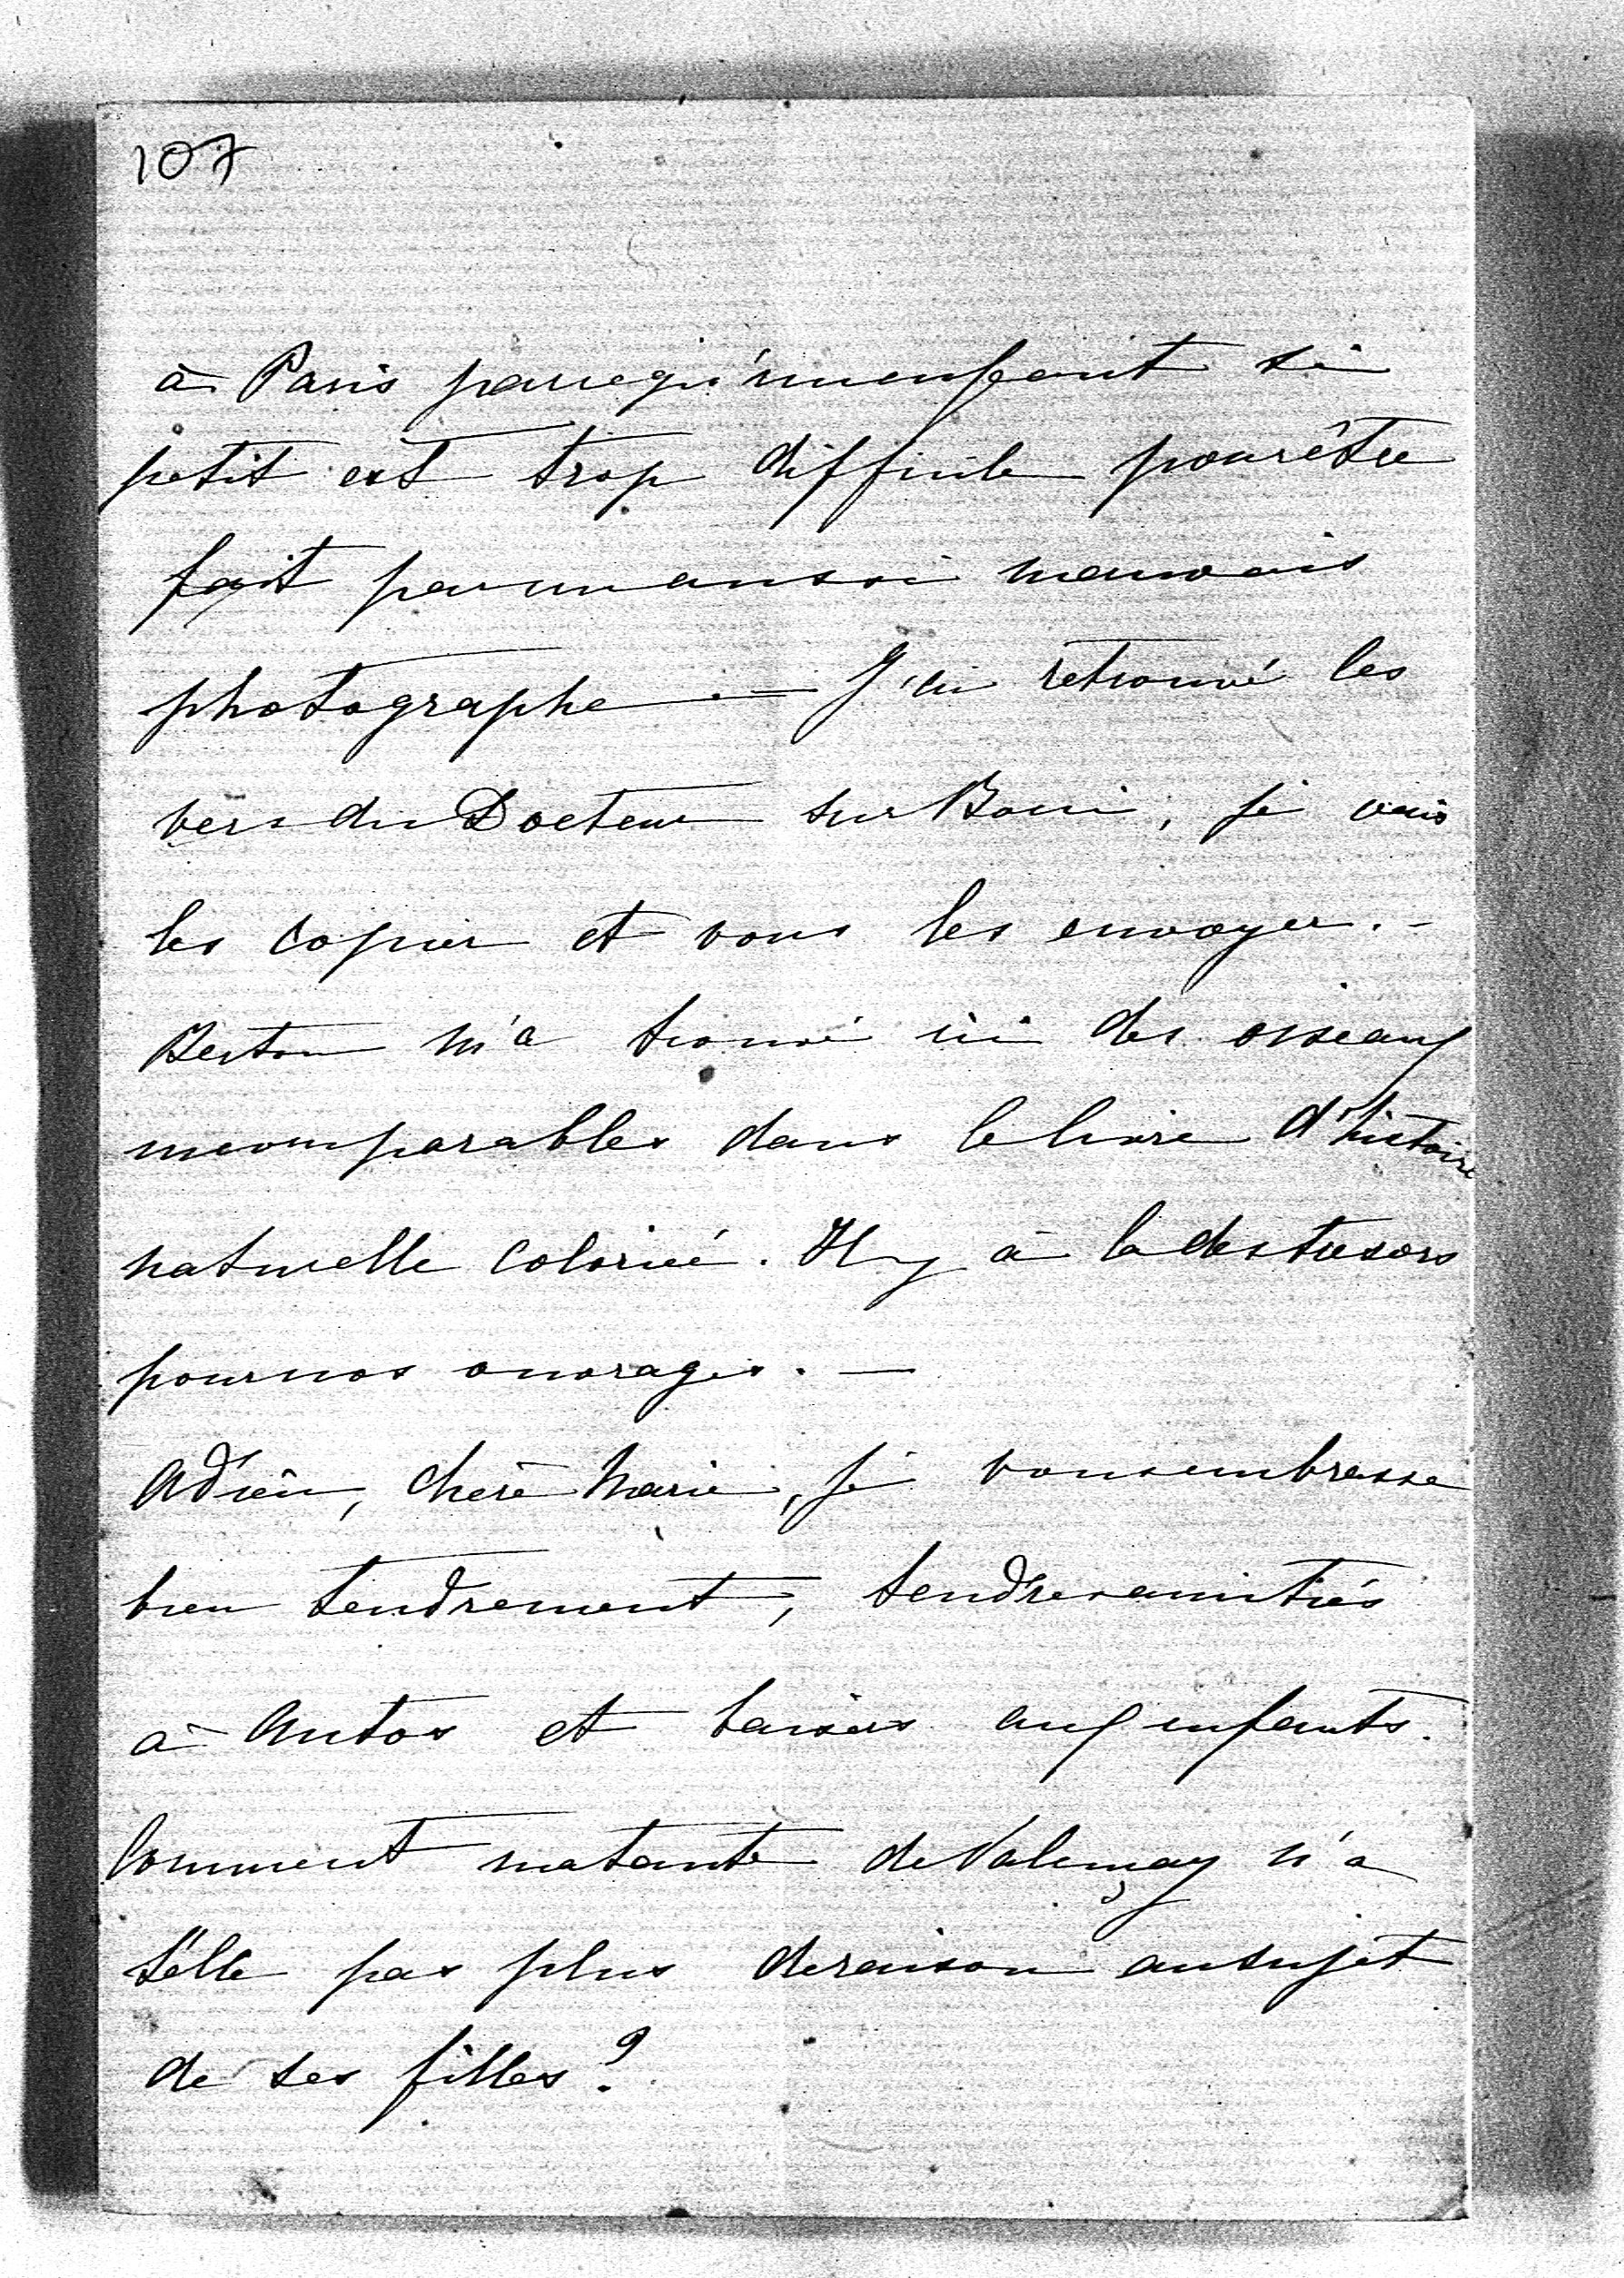 107
à Paris parcequ'un enfant si
petit est trop difficile pour être
fait par un aussi mauvais
photographe — J'ai retrouvé les
vers du Docteur sur Boni, je vais
les copier et vous les envoyer. -
m'a trouvé ici des oiseaux
incomparables dans le livre d'histoire
naturelle colorieé. Il y à la des tresors
pour nos ouvrages. —
Adieu, chère Marie, je vous embrasse
bien tendrement, tendres amitiés
à Antos et baisers aux enfants.
Comment ma tante de Valençay n'a
t'elle pas plus de raison au sujet
de ses filles ?